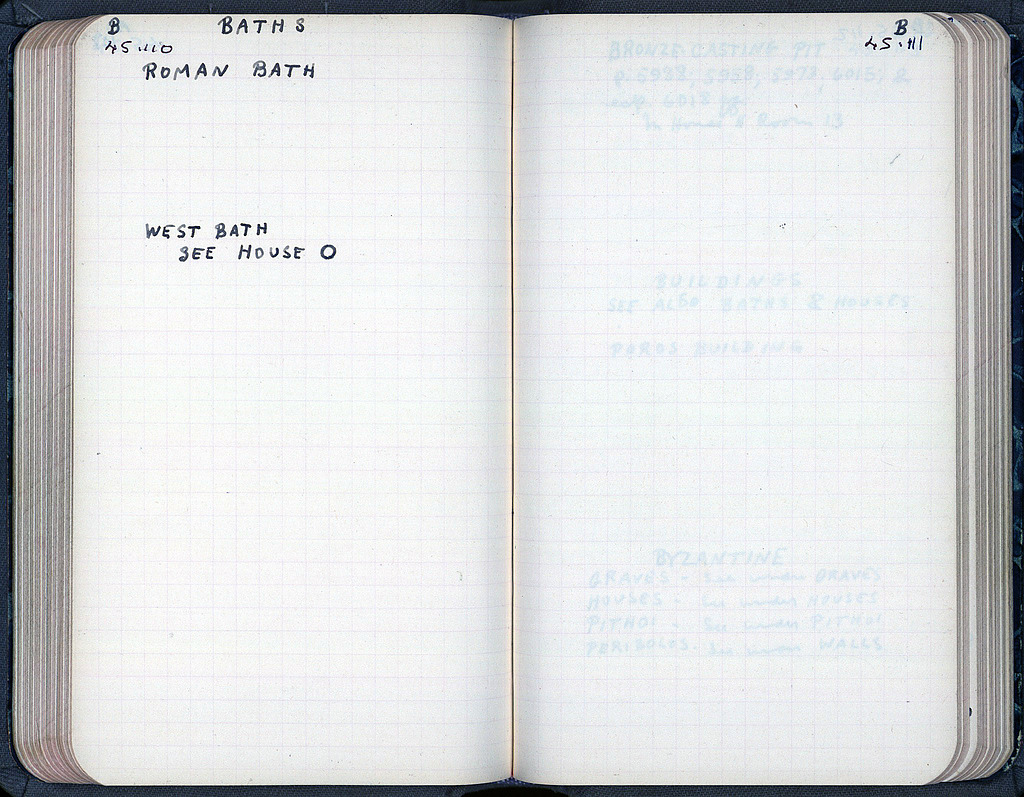 B
BATHS
45.110
ROMAN BATH
WEST BATH
SEE HOUSE O
B
45.111
BRONZE CASTING PIT
In House N Room 13
BUILDINGS
SEE ALSO BATHS & HOUSES
POROS BUILDING
BYZANTINE
GRAVES - See under GRAVES
HOUSES - See under HOUSES
PITHOI - See under PITHOI
PERIBOLOS - See under WALLS